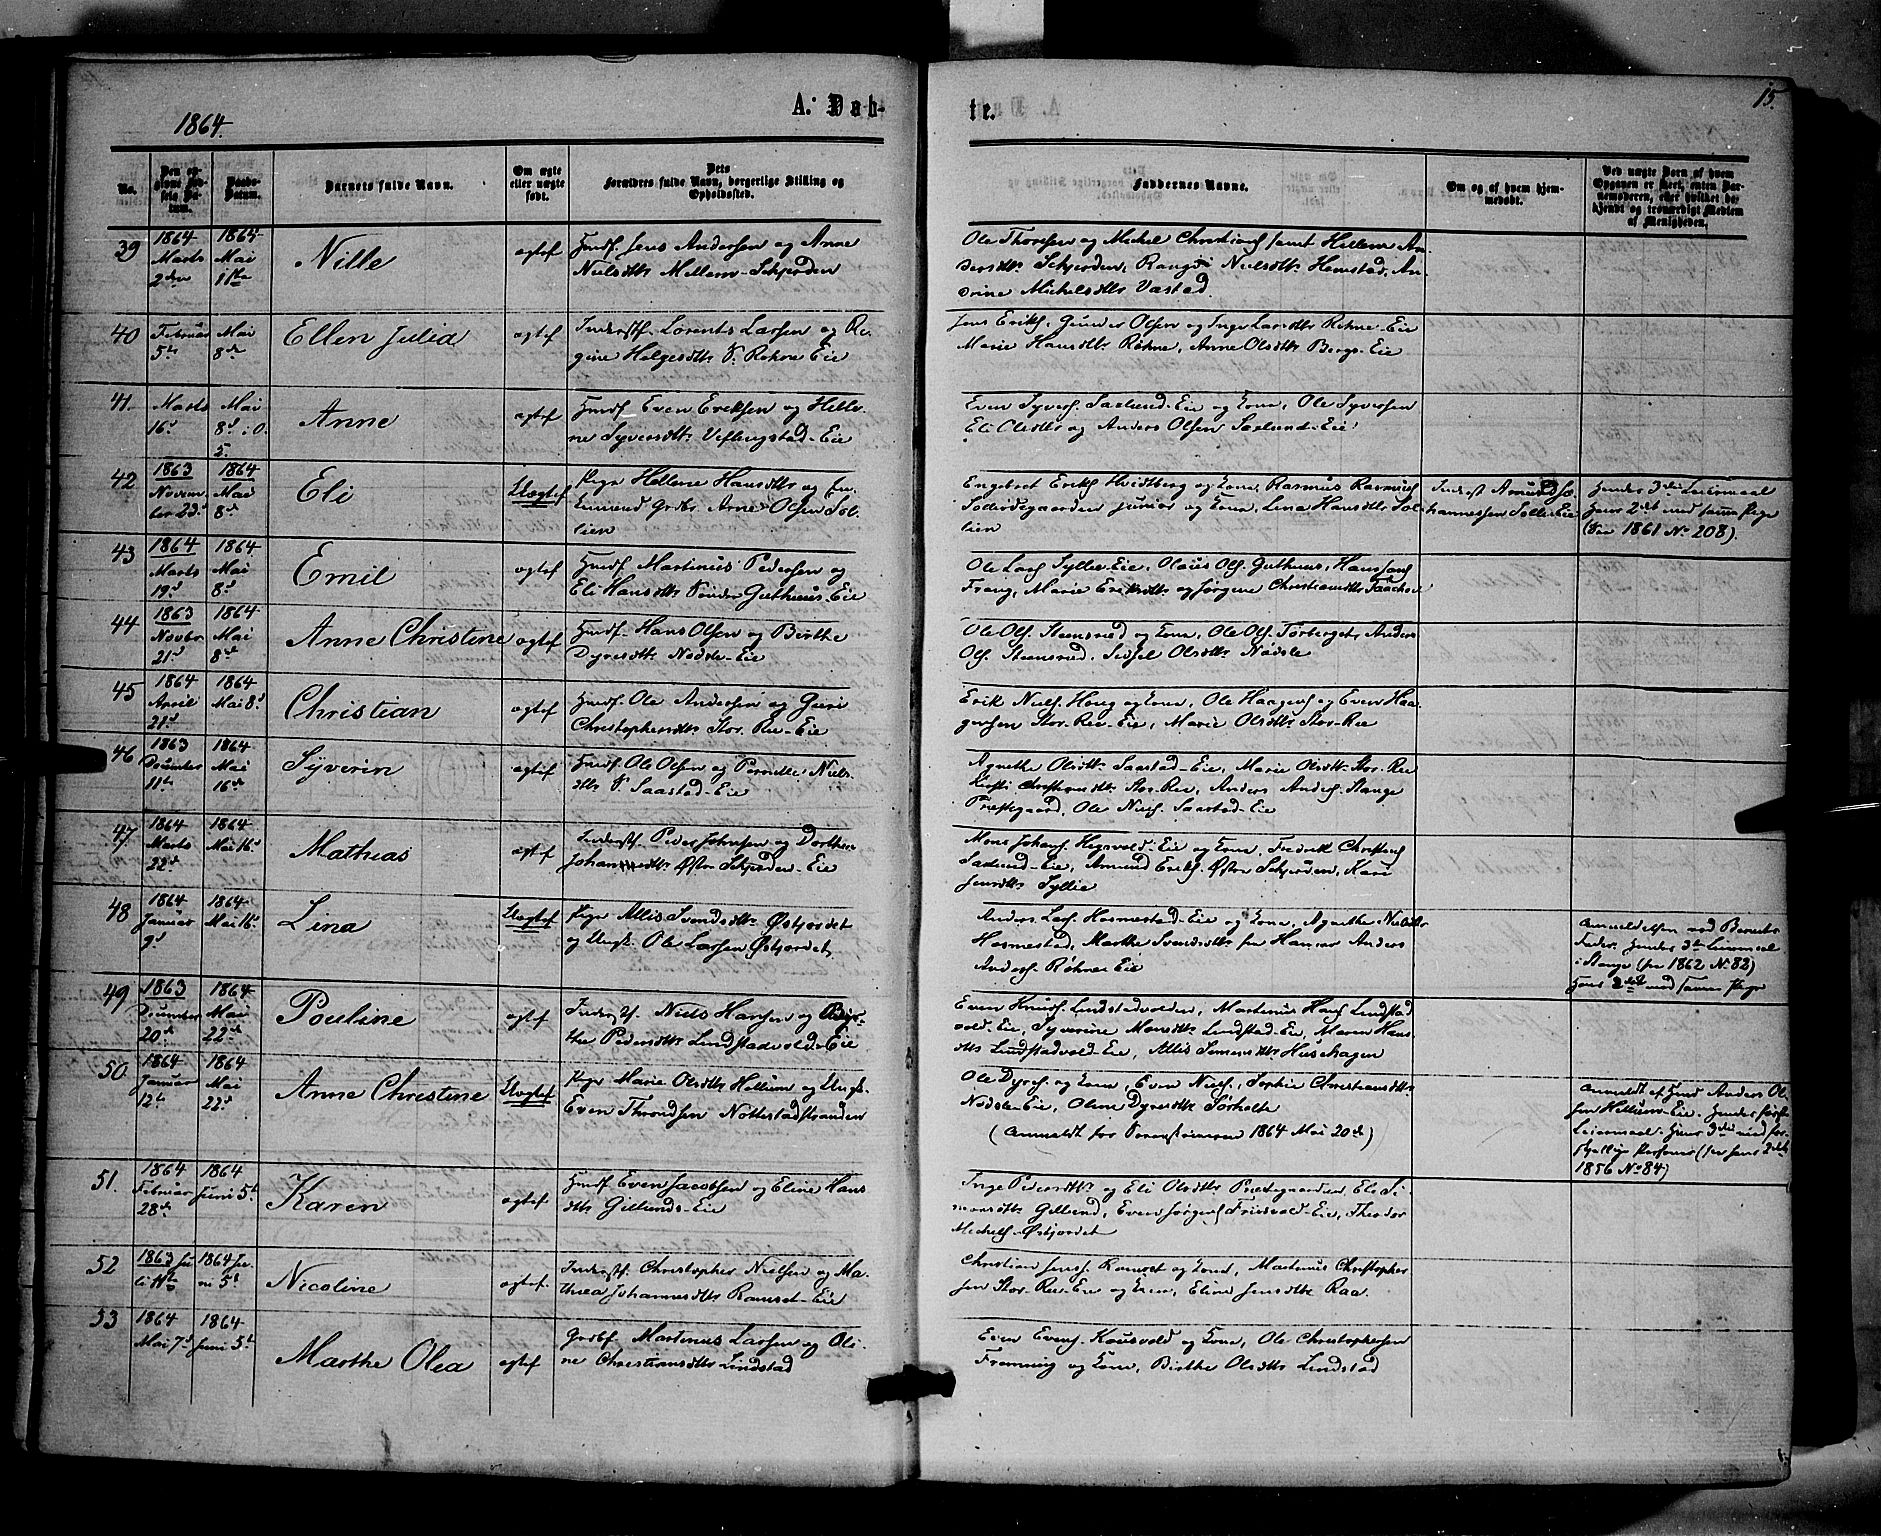 15.
1864.
A. Døb-
te.
No.
Den op-
givne Fød-
sels Da-
tum.
Daabs-
Datum.
Barnets fulde Navn.
Om ægte
eller uægte
født.
Dets
Forældres fulde Navn, borgerlige Stilling og
Opholdssted.
Faddernes Navne.
Om og af hvem hjem-
medøbt.
Ved uægte Børn af hvem
Opgaven er skeet, enten Bar-
nemoderen, eller hvilket be-
kjendt og troværdigt Medlem
af Menigheden.
39
1864
Marts
2den
1864
Mai
1ste
Nille
ægtef
Huusf. Jens Andersen og Anne
Nielsdttr Mellem-Schjerden
Ole Thoresen og Michel Christians samt Hellene An-
dersdttr Schjerden, Nielsdttr Hemstad, An-
drine Michelsdttr Vastad.
40
Februar
5te
Mai
8de
Ellen Julia
ægtef
Inderstf. Lorents Larsen og Re-
gine Holgersdttr Rohne Eie
Jens Eriks. Gunder Olsen og Inge Larsdttr Rohne-Eie
Marie Hansdttr Røhne, Anne Olsdttr Bergs-Eie
41.
Marts
16d
Mai
8d
5.
Anne
ægtef
Huusf Even Eriksen og Helle-
ne Syversdttr Uflengstad-Eie
Even Syvers. Saxlund-Eie og Kone, Ole Syversen
Eli Olsdttr og Anders Olsen Saxlund-Eie
42
1863
Novem-
ber 23d
1864
Mai
8d
Eli
Uægtef
Pige Hellene Hansdttr og
Grdbr. Arne Olsen Sol-
lien
Engebret Eriks Hvidtberg og Kone, Rasmus Rasmuss
Soderdegaarden junior og Kone, Lena Hansdttr Sol-
lien
Inderst Amund Jo-
hannessen Sollie Eie
Hendes 3die Leiermaal
Hans 2det med samme Pige
(See 1861 No 208).
43
1864
Marts
19d
1864
Mai
8d
Emil
ægtef
Huusf. Martinus Pedersen og
Eli Hansdttr Sønder Guthuus-Eie
Ole Lars Syllie-Eie, Olaus Ols. Guthuus, Hans Jens
Frang, Marie Eriksdttr og Jørgine Christiansdttr
44
1863
Novbr
21d
1864
Mai
8de
Anne Christine
ægtef
Huusf. Hans Olsen og Birthe
Dyresdttr Nødsle-Eie
Ole Ols. Steensrud og Kone, Ole Ols. Torberget, Anders
Ols. Steensrud, Sidsel Olsdttr Nødsle
45
1864
April
21d
1864
Mai 8d
Christian
ægtef
Huusf. Ole Andersen og Guri
Christophersdttr Stor-Ree-Eie
Erik Niels. Haug og Kone, Ole Haagens og Even Haa-
gensen Stor-Ree-Eie, Marie Olsdttr Stor-Ree
46
1863
December
11te
1864
Mai
16de
Syverin
ægtef
Huusf. Ole Olsen og Pernille Niels-
dttr Saastad-Eie
Agnethe Olsdttr Saastad-Eie, Marie Olsdttr Stor-Ree
Kirsti Christiansdttr Stor-Ree, Anders Anders. Stange
Præstegaard, Ole Niels. Saastad-Eie
47.
1864
Marts
22d
1864
Mai 16d
Mathias
ægtef
Inderstf. Peder Johnsen og Dorthea
Johannesdttr Østre Schjerden-Eie
Mons Johans. Hegsvold-Eie og Kone, Fredrik Christians
Saxlund-Eie, Amund Eriks. Østre Schjerden, Kari
Jensdttr Syllie
48
1864
Januar
9d
1864
Mai 16d
Lina
Uægtef
Pige Allis Svendsdttr Østjordet
og Ungk. Ole Larsen Østjordet
Anders Lars. Hosmestad-Eie og Kone, Agnethe Nielsdttr
Hosmestad, Marthe Svendsdttr fra Hamar, Anders
Anders. Røhne Eie
Anmeldelsen ved Barnets
Fader. Hendes 3d Leiermaal
i Stange (see 1862 No 82)
Hans 2det med samme Pige
49
1863
December
20de
1864
Mai
22de
Pouline
ægtef
Inderstf. Niels Hansen og Birt-
the Pedersdttr Lindstadvold-Eie
Even Knuds. Lindstadvolden, Martinus Hans Lindstad
vold-Eie, Syverine Monsdttr Lindstad-Eie, Maren Hans
dttr Lindstadvold-Eie, Allis Simensdttr Husehagen
50
1864
Januar
12te
1864
Mai
22d
Anne Christine
Uægtef
Pige Marie Olsdttr Hellum og Ungk.
Even Throndsen Nottestadstranden
Ole Dyres. og Kone, Even Niels., Sophie Christiansdttr
Nødsle-Eie, Oline Dyresdttr Sørholte
(Anmeldt for 1864 Mai 20de)
Anmeldt af Huusf Anders Ol-
sen Hellum-Eie. Hendes første
Leiermaal. Hans 3die med for-
skjellige Personer (see hans 2det
1856 No 84)
51.
1864
Februar
28de
1864
Juni 5te
Karen
ægtef
Huusf. Even Jacobsen og Eline Hans
dttr Gillunds-Eie
Inge Pedersdttr og Eli Olsdttr Præstegaarden, Eli Si-
monsdttr Gillund, Even Jørgens Fridsvold-Eie, Theodor
Michels. Østjordet
52
1863 Ju-
li
1864 Ju-
ni 5te
Nicoline
ægtef.
Inderstf. Christopher Nielsen og Ma-
threa Johannesdttr Ramset-Eie
Christian Jens. Ramset og Kone, Martinus Christopher
sen Stor-Ree-Eie og Kone, Eline Jensdttr Raa.
53
1864
Mai 7d
1864
Juni 5te
Marthe Olea
ægtef
Grdbf. Martinus Larsen og Oli-
ne Christiansdttr Lindstad
Even Evens. Kausvold og Kone, Ole Christophersen
Fremming og Kone, Birthe Olsdttr Lindstad